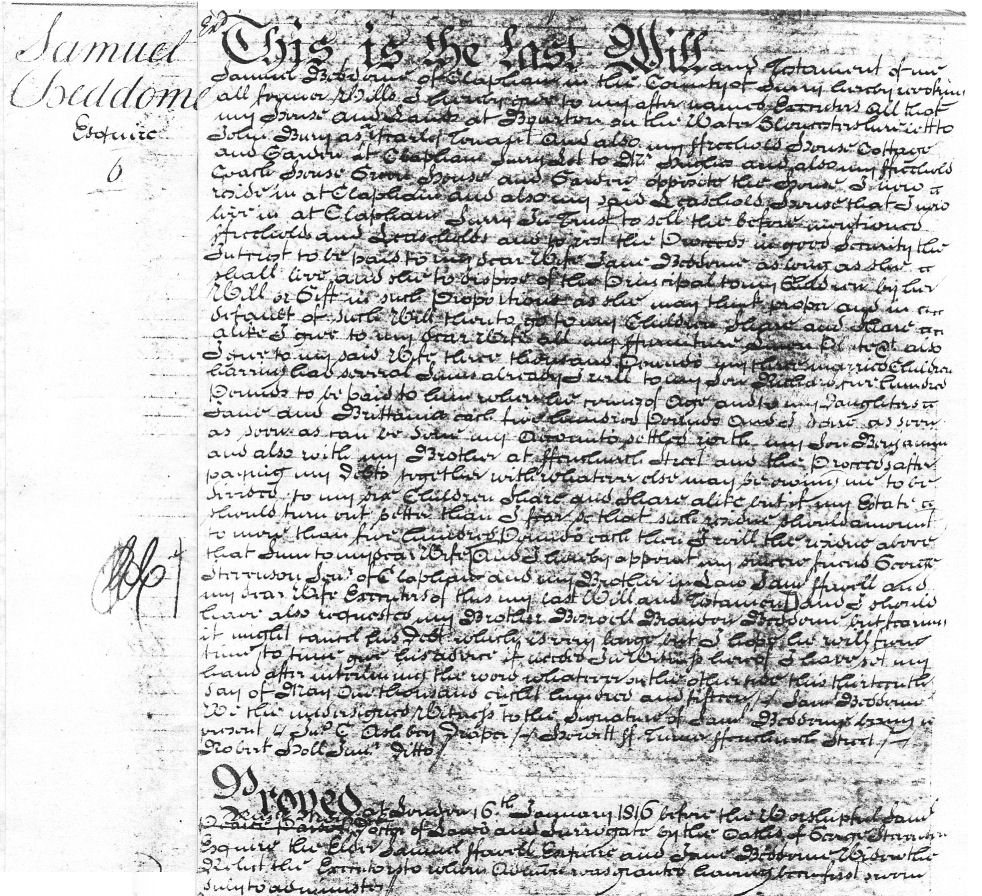 Samuel
Beddome
Esquire
6
This is the last Will and Testament of me
Samuel Beddome of Clapham in the County of Surry hereby revoking
all former Wills I hereby give to my after named Executors All that
my House and Lands at Bourton on the Water Gloucestershire let to
John Bury as Tenant And also my ffreehold House Cottage
and Garden at Clapham Surry Let to Mr. Hughes and also my ffreehold
Coach House Green House and Garden opposite the House I now
reside in at Clapham and also my said Leasehold House that I now
live in at Clapham Surry In Trust to sell the before mentioned
ffreeholds and Leaseholds and to invest the Proceeds in good Security the
Interest to be paid to my dear Wife Jane Beddome as long as she
shall live and she to dispose of the Principal to my Children by her
Will or Gift in such Proportions as she may think proper and in
default of such Will then to go to my Children Share and Share
alike I give to my dear Wife all my ffurniture Linen Plate &c also
I give to my said Wife three thousand Pounds my three married Children
having had several Sums already I will to my Son Richard five hundred
Pounds to be paid to him when he comes of Age and to my Daughters
Jane and Brittania each five hundred Pounds And I desire as soon
as soon as can be done my Accounts settled with my Son Benjamin
and also with my Brother at ffenchurch Street and the Proceeds after
paying my debts together with whatever else may be owing me to be
divided to my six Children Share and Share alike but if my Estate
should turn out better than I fear so that such residue should amount
to more than five hundred Pounds each then I will the residue above
that Sum to my dear Wife And I hereby appoint my sincere friend George
Stevenson Senr. of Clapham and my Brother in Law Saml ffavell and
my dear Wife Executors of this my last Will and Testament and I should
have also requested my Brother Boswell Brandon Beddome but fearing
it might cancel his Debt which is very large but I hope he will from
time to time give his advice if needed In Witness hereof I have set my
hand after interlining the word whatever on the other side this thirteenth
day of May One thousand eight hundred and fifteen Saml Beddome
We the undersigned Witness to the Signature of Saml Beddome being
present C Ashbery Draper Howitt ff Turner ffenchurch Street
Robert Holl Junr. Ditto
Proved at London 16th January 1816 before the Worshipful Saml
Pearce Parson Doctor of Laws and Surrogate by the Oaths of George Stevenson
Esquire the Elder Samuel ffavell Esquire and Jane Beddome Widow the
Relict the Executors to whom Admon was granted having been first sworn
duly to administer